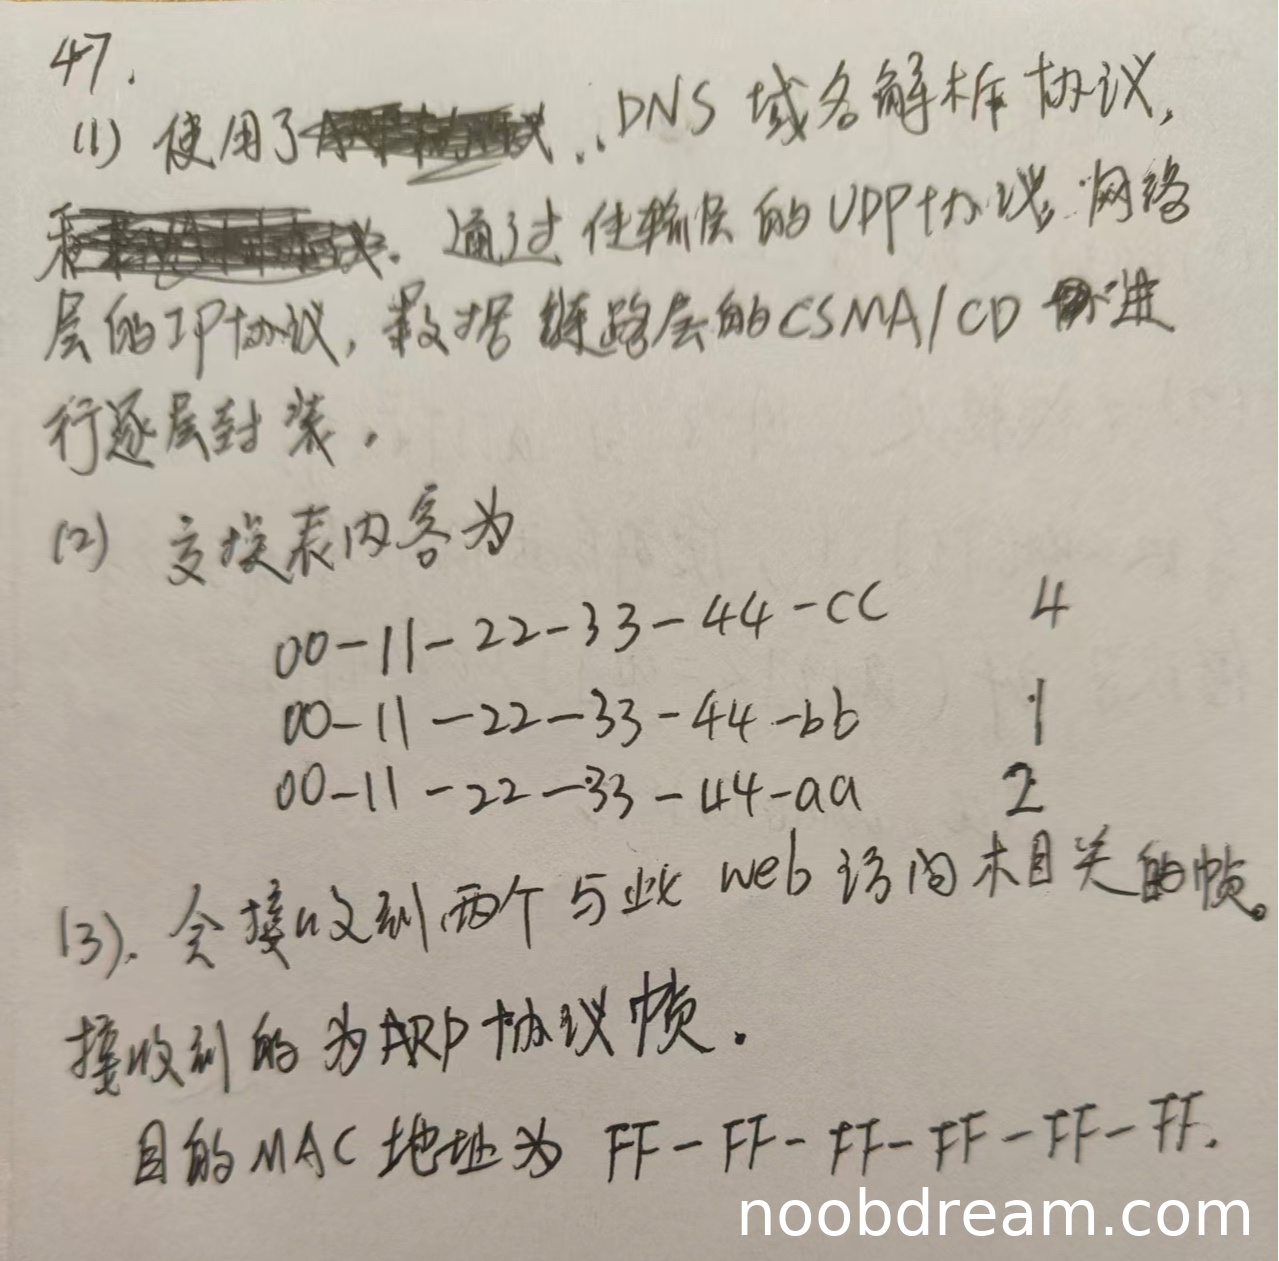 47.
(1) 使用了 .. DNS 域名解析协议,
通过传输层的UDP协议, 网络
层的IP协议, 数据链路层的CSMA/CD 进
行逐层封装.
(2) 交换表内容为
00-11-22-33-44-CC 4
00-11-22-33-44-bb 1
00-11-22-33-44-aa 2
(3). 会接收到两个与此 web 访问相关的帧。
接收到的为ARP协议帧.
目的MAC地址为 FF-FF-FF-FF-FF-FF.
noobdream.com